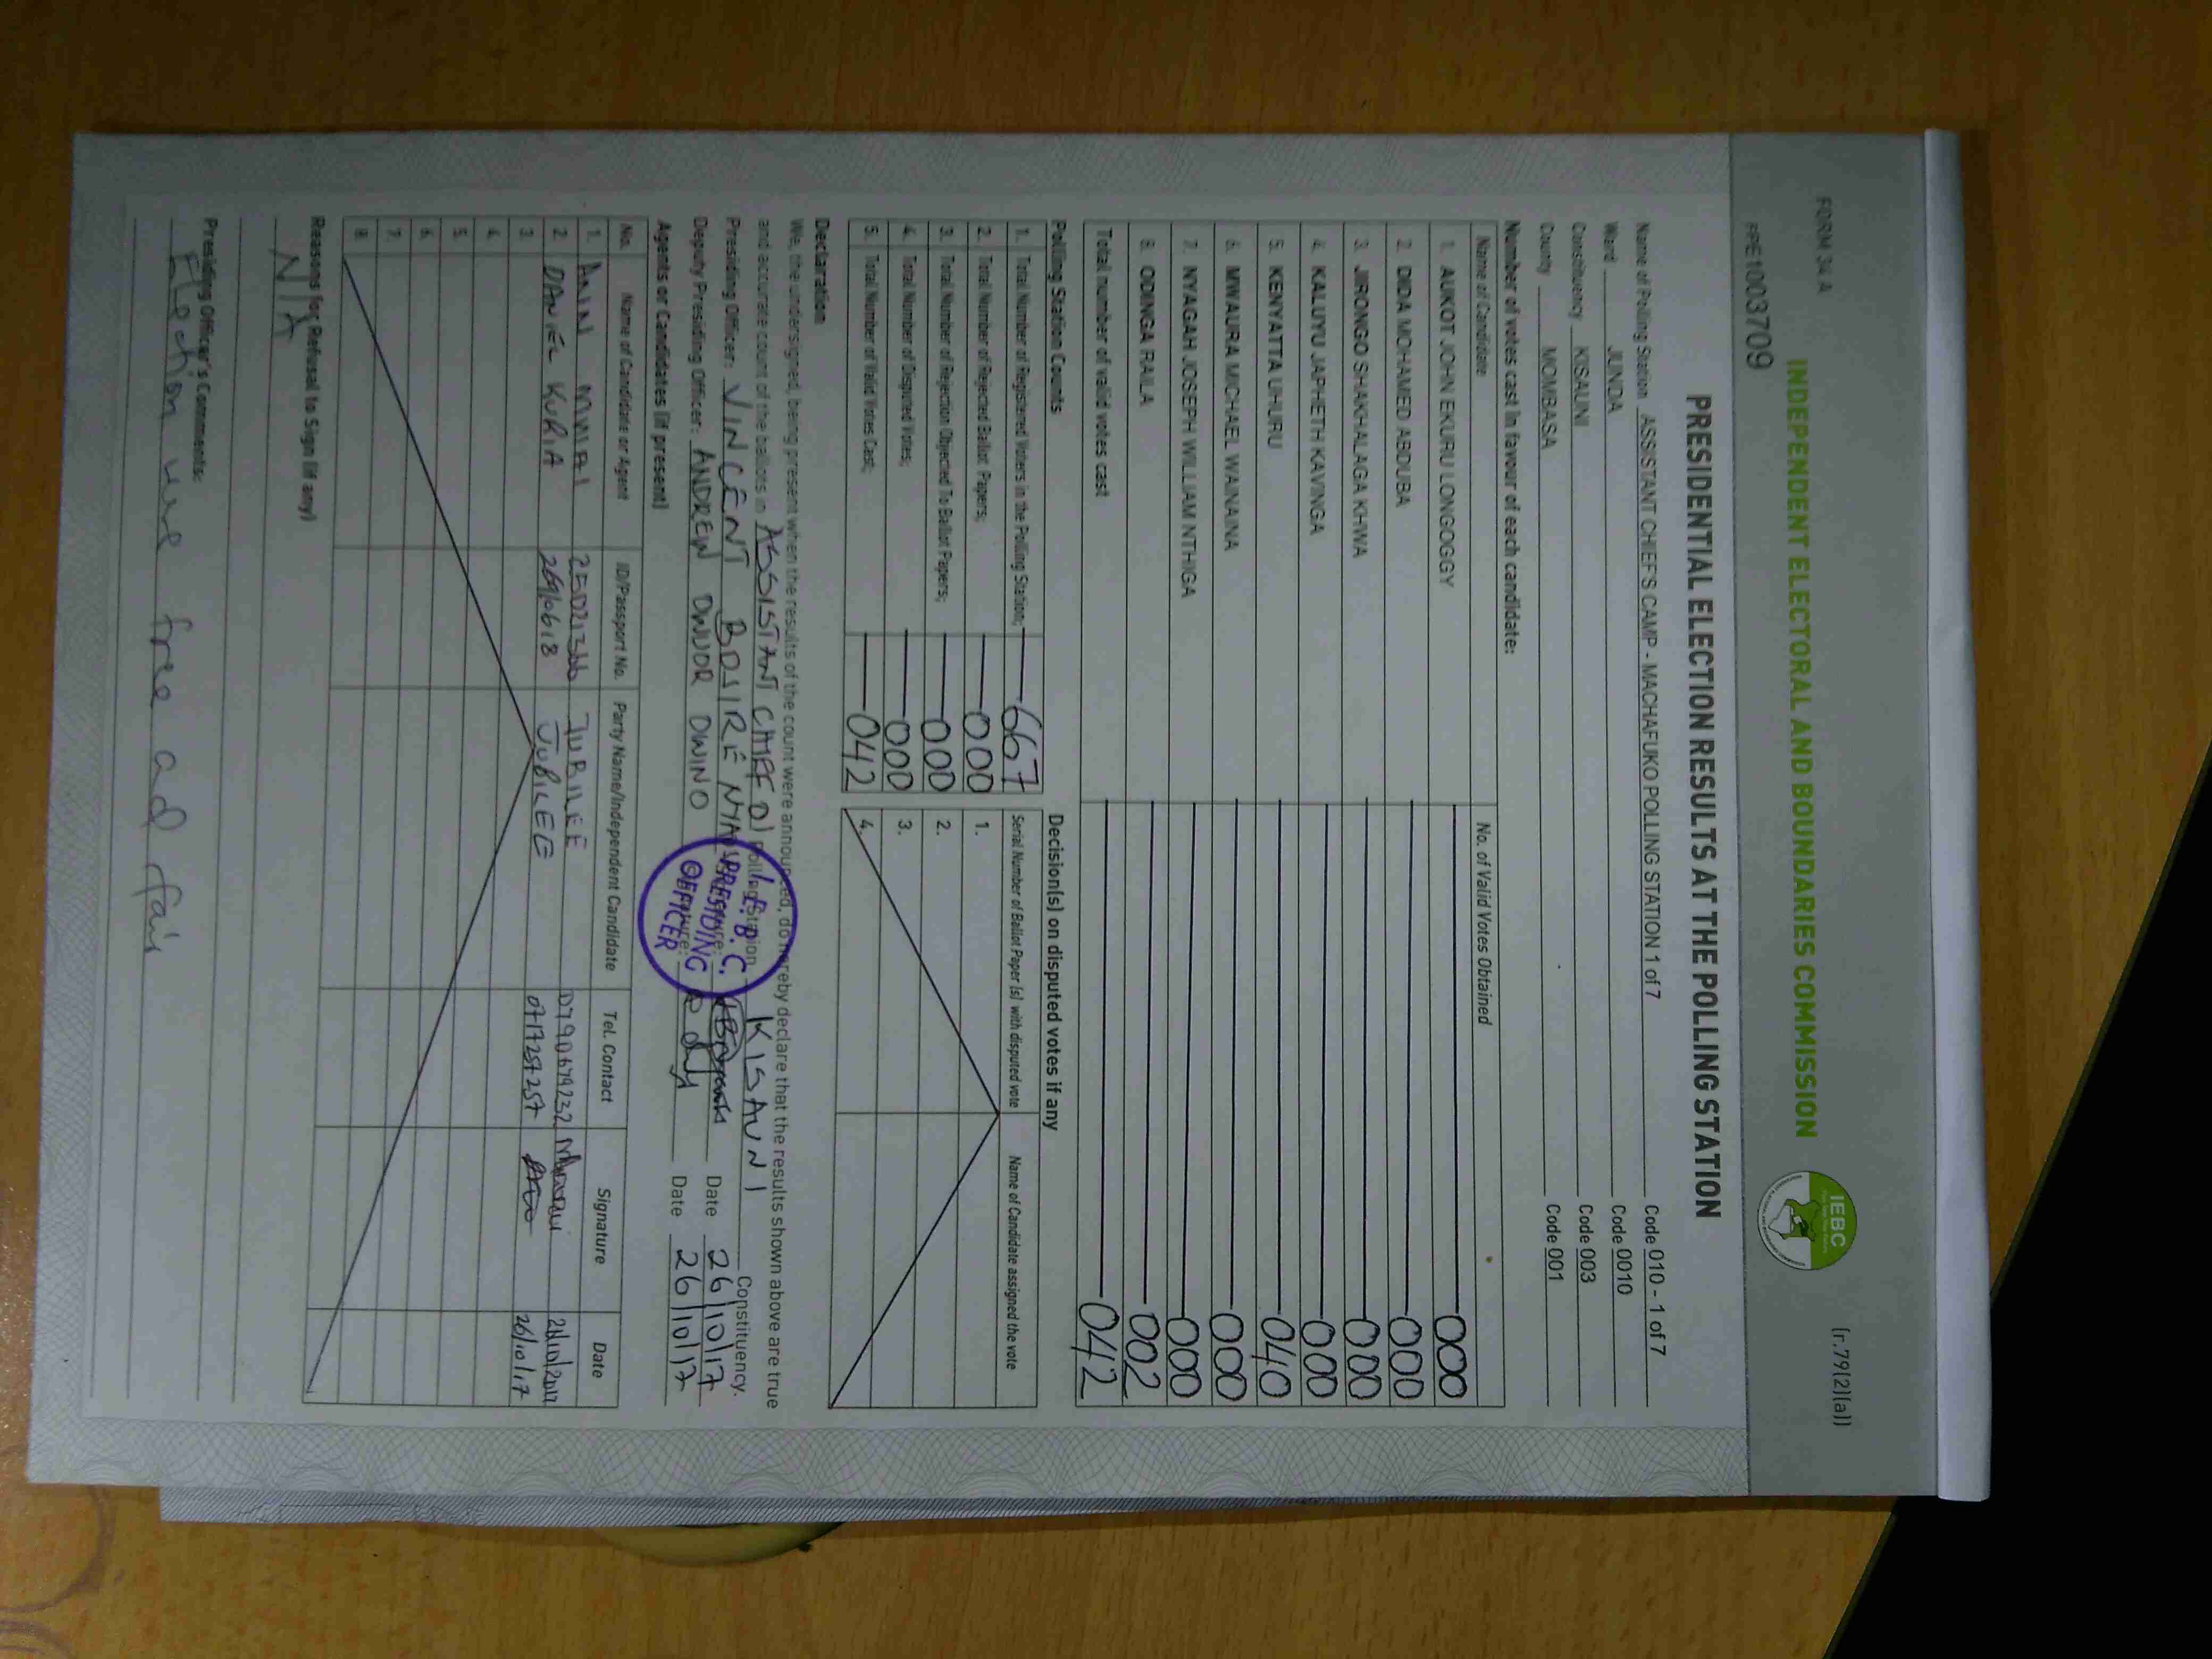 FORM 34 A
(r.79(2)(a))
INDEPENDENT ELECTORAL AND BOUNDARIES COMMISSION
IEBC
PRE1003709
PRESIDENTIAL ELECTION RESULTS AT THE POLLING STATION
Name of Polling Station ASSISTANT CHIEF'S CAMP - MACHAFUKO POLLING STATION 1 of 7 Code 010 - 1 of 7
Ward JUNDA Code 0010
Constituency KISAUNI Code 003
County MOMBASA Code 001
Number of votes cast in favour of each candidate:
Name of Candidate No. of Valid Votes Obtained
1. AUKOT JOHN EKURU LONGOGGY 000
2. DIDA MOHAMED ABDUBA 000
3. JIRONGO SHAKHALAGA KHWA 000
4. KALUYU JAPHETH KAVINGA 000
5. KENYATTA UHURU 040
6. MWAURA MICHAEL WAINAINA 000
7. NYAGAH JOSEPH WILLIAM NTHIGA 000
8. ODINGA RAILA 002
Total number of valid votes cast 042
Polling Station Counts
1. Total Number of Registered Voters in the Polling Station; 667
2. Total Number of Rejected Ballot Papers; 000
3. Total Number of Rejection Objected To Ballot Papers; 000
4. Total Number of Disputed Votes; 000
5. Total Number of Valid Votes Cast; 042
Decision(s) on disputed votes if any
Serial Number of Ballot Paper (s) with disputed vote Name of Candidate assigned the vote
1.
2.
3.
4.
Declaration
We, the undersigned, being present when the results of the count were announced, do hereby declare that the results shown above are true
and accurate count of the ballots in ASSISTANT CHIEF Polling Station KISAUNI Constituency.
Presiding Officer: VINCENT BOSIRE Date 26/10/17
Deputy Presiding Officer: ANDREW OWUOR OWINO Date 26/10/17
I.E.B.C.
PRESIDING
OFFICER
Agents or Candidates (if present)
No. Name of Candidate or Agent ID/Passport No. Party Name/Independent Candidate Tel. Contact Signature Date
1. MWAI JUBILEE 0790679232
2. DANIEL KURIA 26910618 JUBILEE 0717257257 26/10/17
3.
4.
5.
6.
7.
8.
Reasons for Refusal to Sign (if any)
N/A
Presiding Officer's Comments:
Election free ad fair